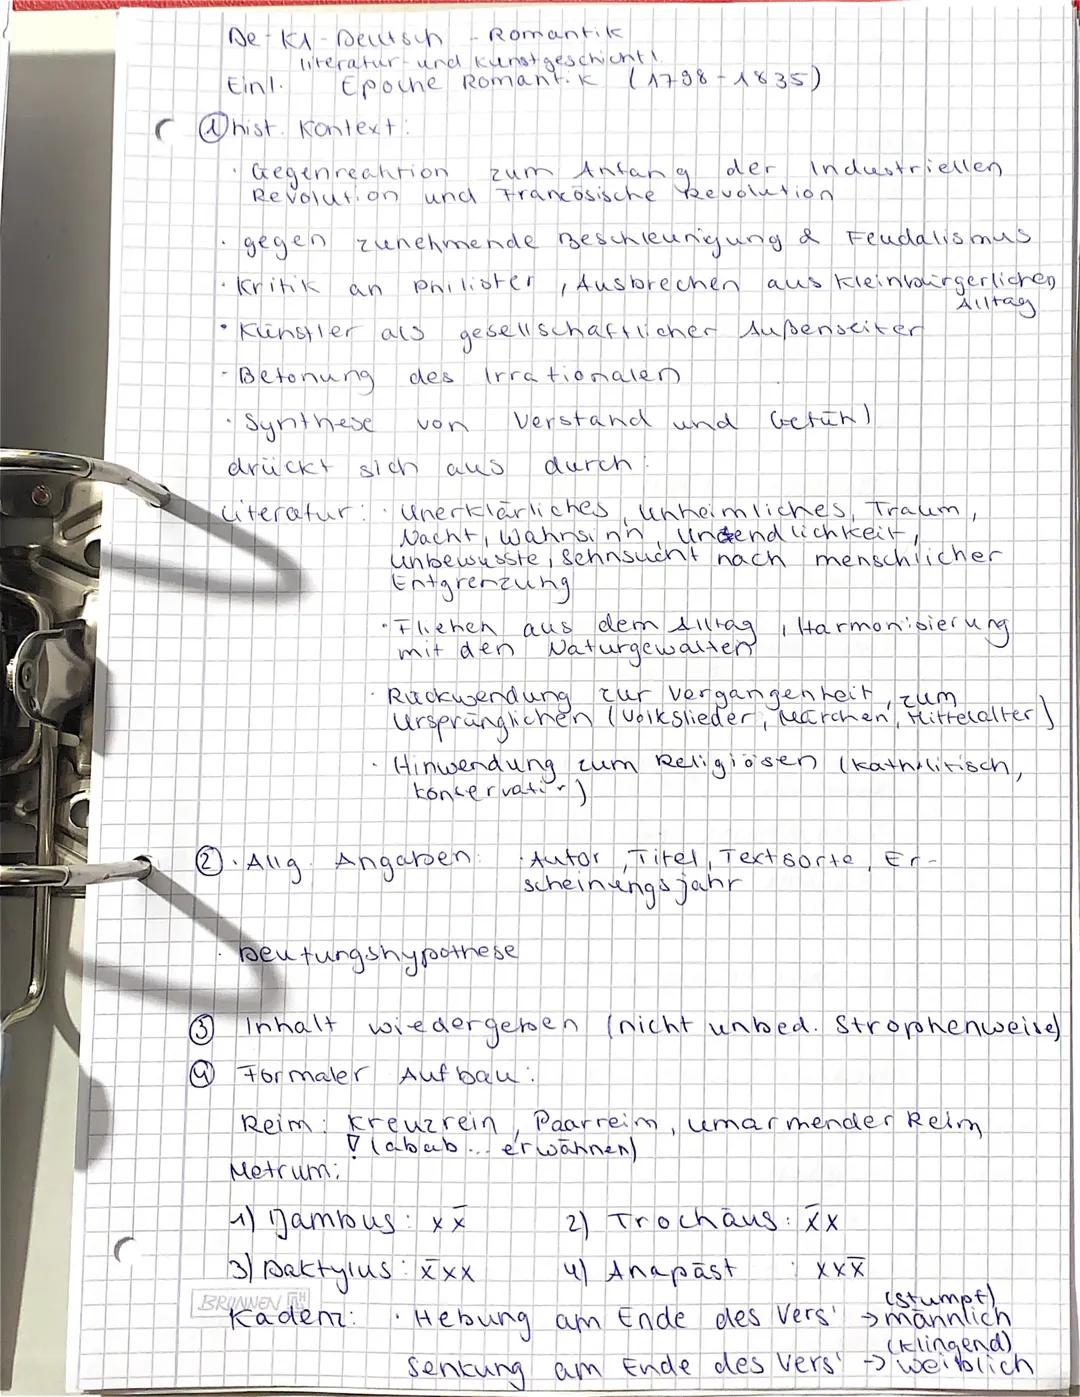 De-KA-Deutsch - Romantik
literatur- und kunstgeschichtl.
Einl. Epoche Romantik (1798-1835)
① hist. Kontext:
· Gegenreaktion zum Anfang der Industriellen
Revolution und Francösische Revolution
· gegen zunehmende Beschleunigung & Feudalismus
· Kritik an Philister, Ausbrechen aus kleinbürgerlichen
Alltag
· Künstler als gesellschaftlicher Außenseiter
- Betonung des Irrationalen
· Synthese von Verstand und Gefühl
drückt sich aus durch:
Literatur: · Unerklärliches, Unheimliches, Traum,
Nacht, Wahnsinn, Unendlichkeit,
Unbewusste, Sehnsucht nach menschlicher
Entgrenzung
· Fliehen aus dem Alltag, Harmonisierung
mit den Naturgewalten
· Rückwendung zur Vergangenheit, zum
Ursprünglichen (Volkslieder, Märchen, Mittelalter)
· Hinwendung zum Religiösen (katholitisch,
konservativ)
② · Allg. Angaben: · Autor, Titel, Textsorte, Er-
scheinungsjahr
· Deutungshypothese
③ Inhalt wiedergeben (nicht unbed. Strophenweise)
④ Formaler Aufbau:
Reim: Kreuzrein, Paarreim, umarmender Reim
(abab... erwähnen)
Metrum:
1) Jambus: x x̄ 2) Trochäus: x̄ x
3) Daktylus: x̄ x x 4) Anapäst : x x x̄
BRUNNEN
(stumpf)
Kadenz: · Hebung am Ende des Vers' → männlich
(klingend)
Senkung am Ende des Vers' → weiblich